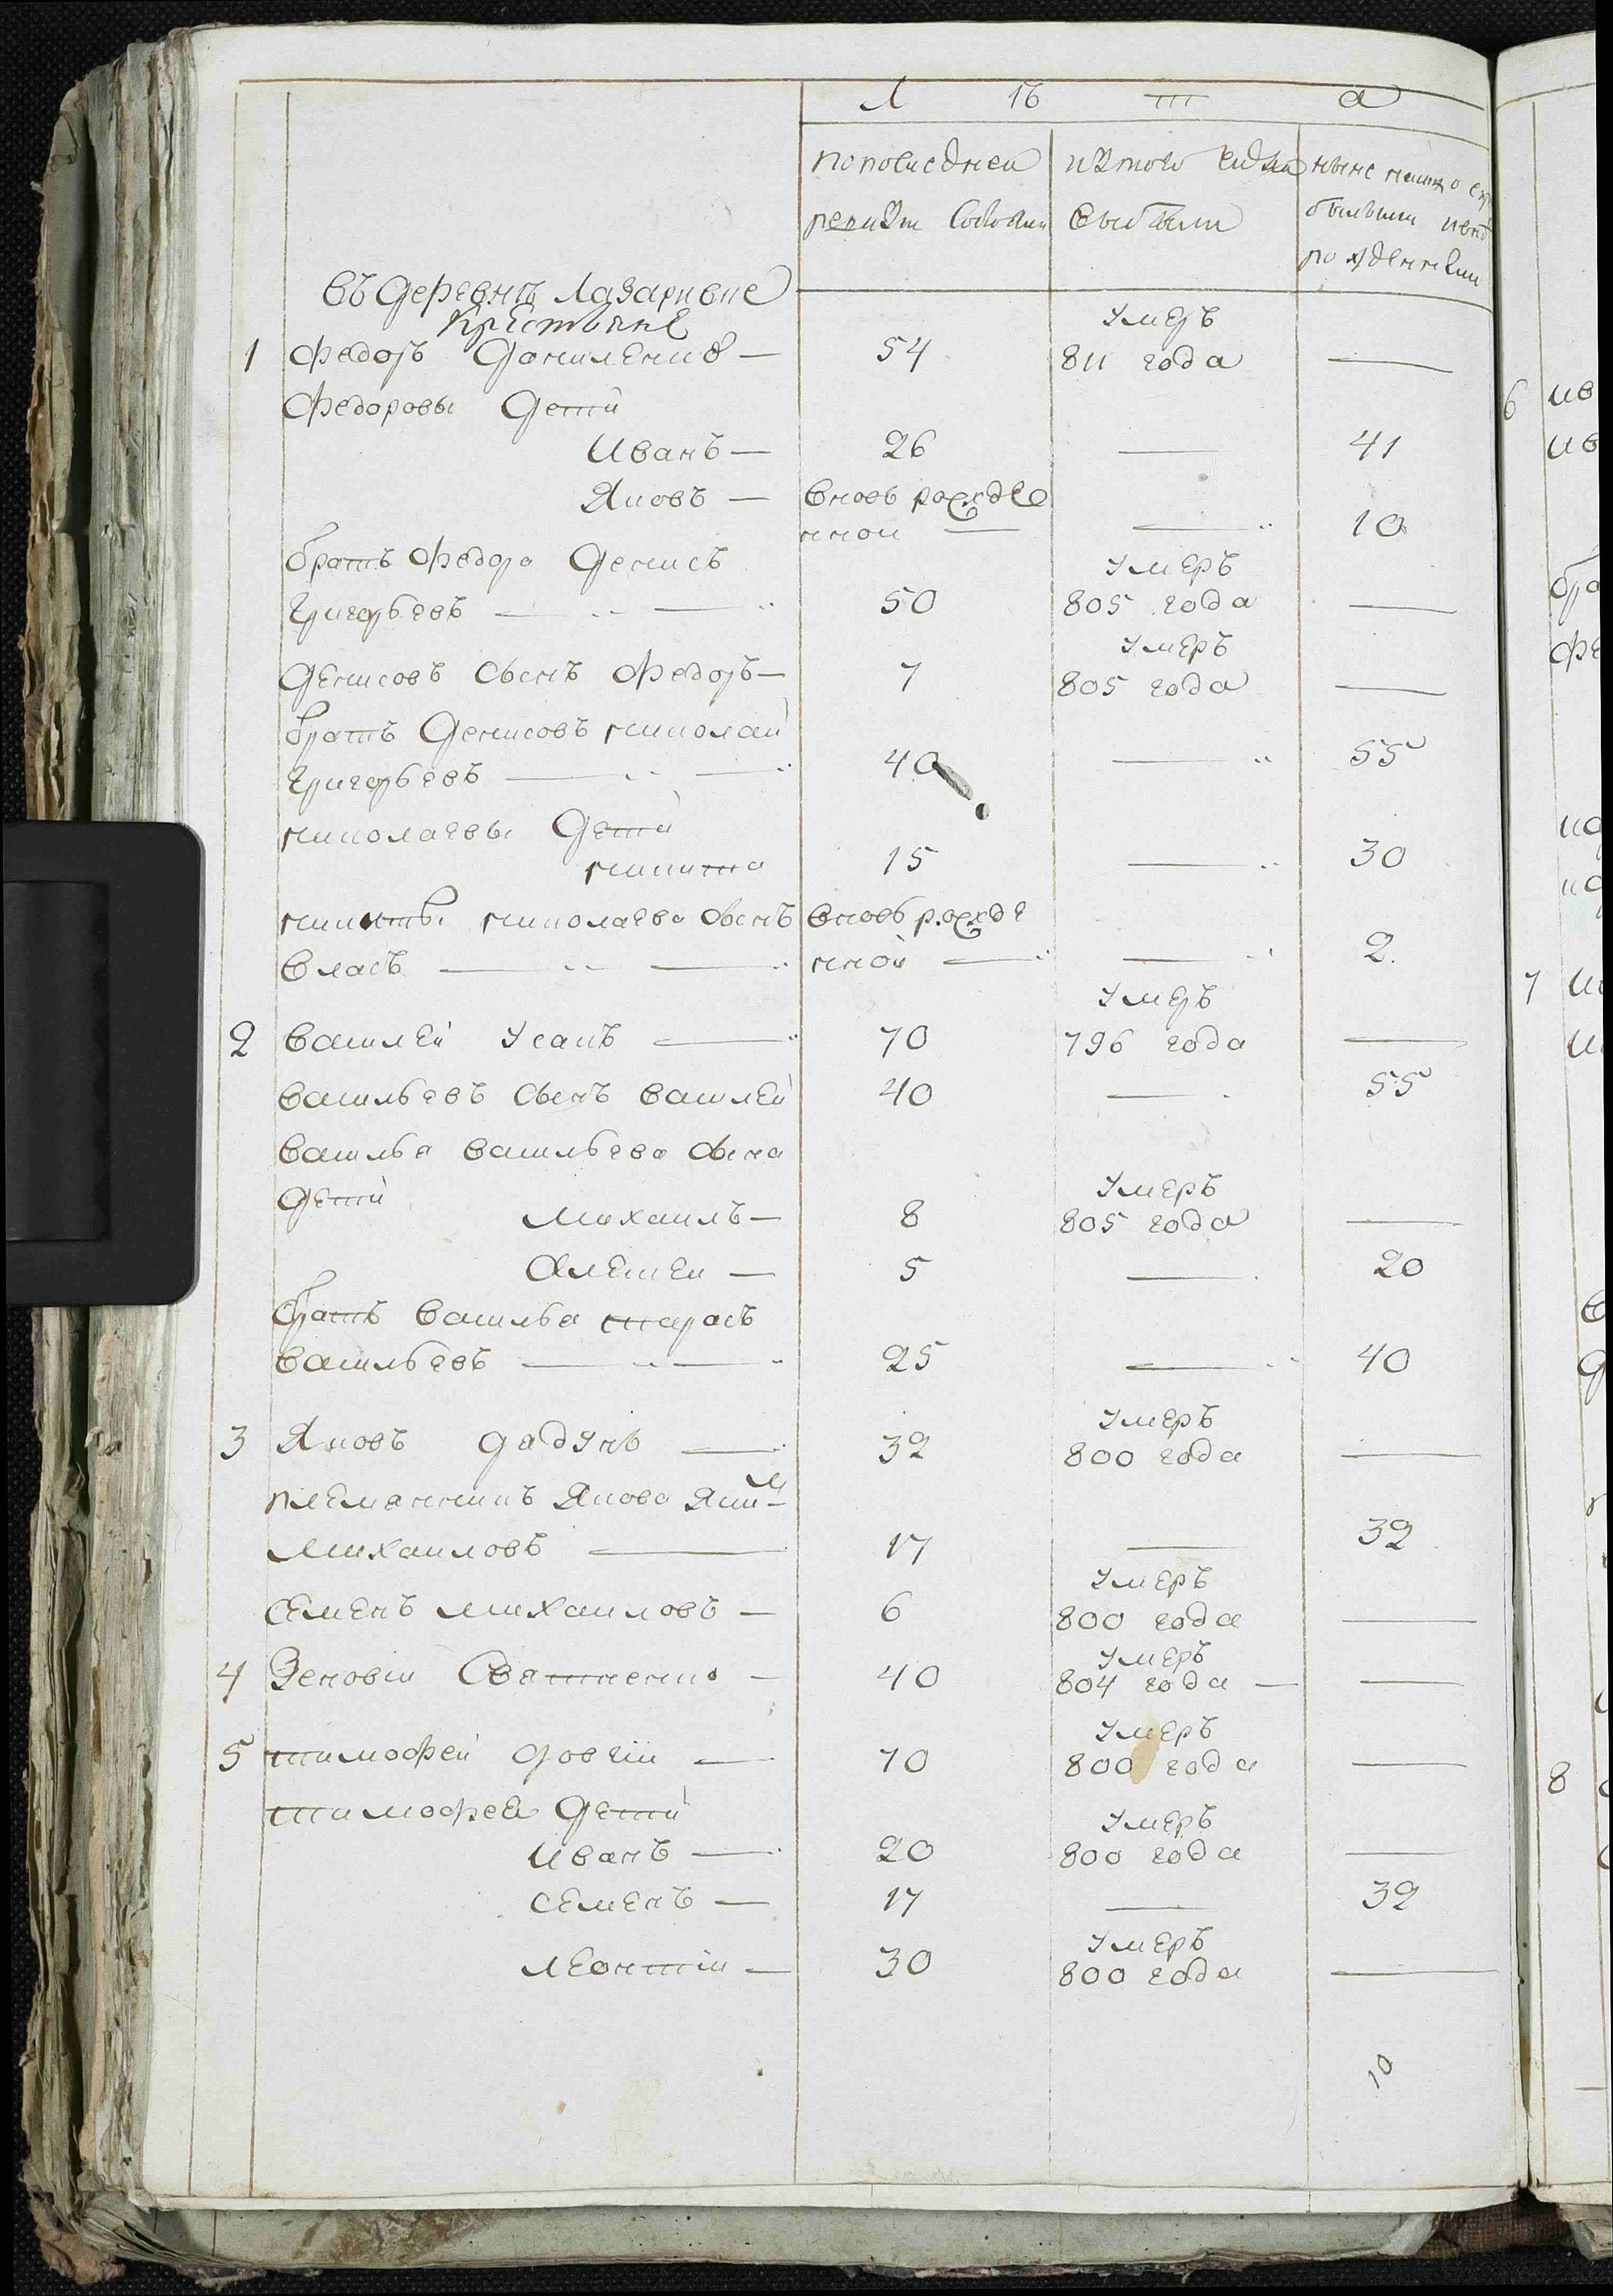 Л ѣ т а
по последней
ревизіи Состояли
ис того числа
выбыли
ныне на лицо съ
бывшими и вновь
рожденными
Въ деревнѣ Лазаривке
Крестьяне
1 Федоръ Даниленко — 54 Умеръ 811 года —
Федоровы Дети
Иванъ — 26 — 41
Яковъ — вновь рожде
нной — — 10
братъ Федора Денисъ
Григорьевъ — 50 Умеръ 805 года —
Денисовъ Сынъ Федоръ — 7 Умеръ 805 года —
братъ Денисовъ николай
Григорьевъ — 40 — 55
николаевы Дети
никита 15 — 30
никиты николаева Сынъ вновь рожде
власъ — нной — — 2
2 василей Усапъ — 70 Умеръ 796 года —
васильевъ Сынъ василей 40 — 55
василья васильева Сына
Дети
Михаилъ — 8 Умеръ 805 года —
Алексей — 5 — 20
братъ василья тарасъ
васильевъ — 25 — 40
3 Яковъ — 32 Умеръ 800 года —
племянникъ Якова Яким
Михаиловъ — 17 — 32
Семенъ Михаиловъ — 6 Умеръ 800 года —
4 Зеновіи Сватненко — 40 Умеръ 804 года — —
5 тимофей довгіи — 70 Умеръ 800 года —
тимофея Дети
Иванъ — 20 Умеръ 800 года —
Семенъ — 17 — 32
леонтіи — 30 Умеръ 800 года —
10
6 ив
ив
бра
фе
7
8